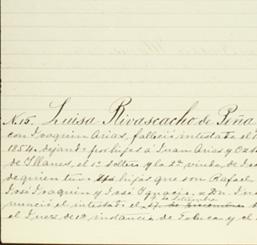 N. 15. Luisa Rivascacho de Peña
con Joaquin Arias, falleció intestada el
1854, dejando por hijos a Juan Arias y
de Illanes, el 1º soltero y la 2ª viuda de
de quien tuvo hijos que son Rafael
José Joaquin y José Ygnacio. Dn.
nunció el intestado el 17 de Setiembre
el Juez de 1ª instancia de Toluca, y el